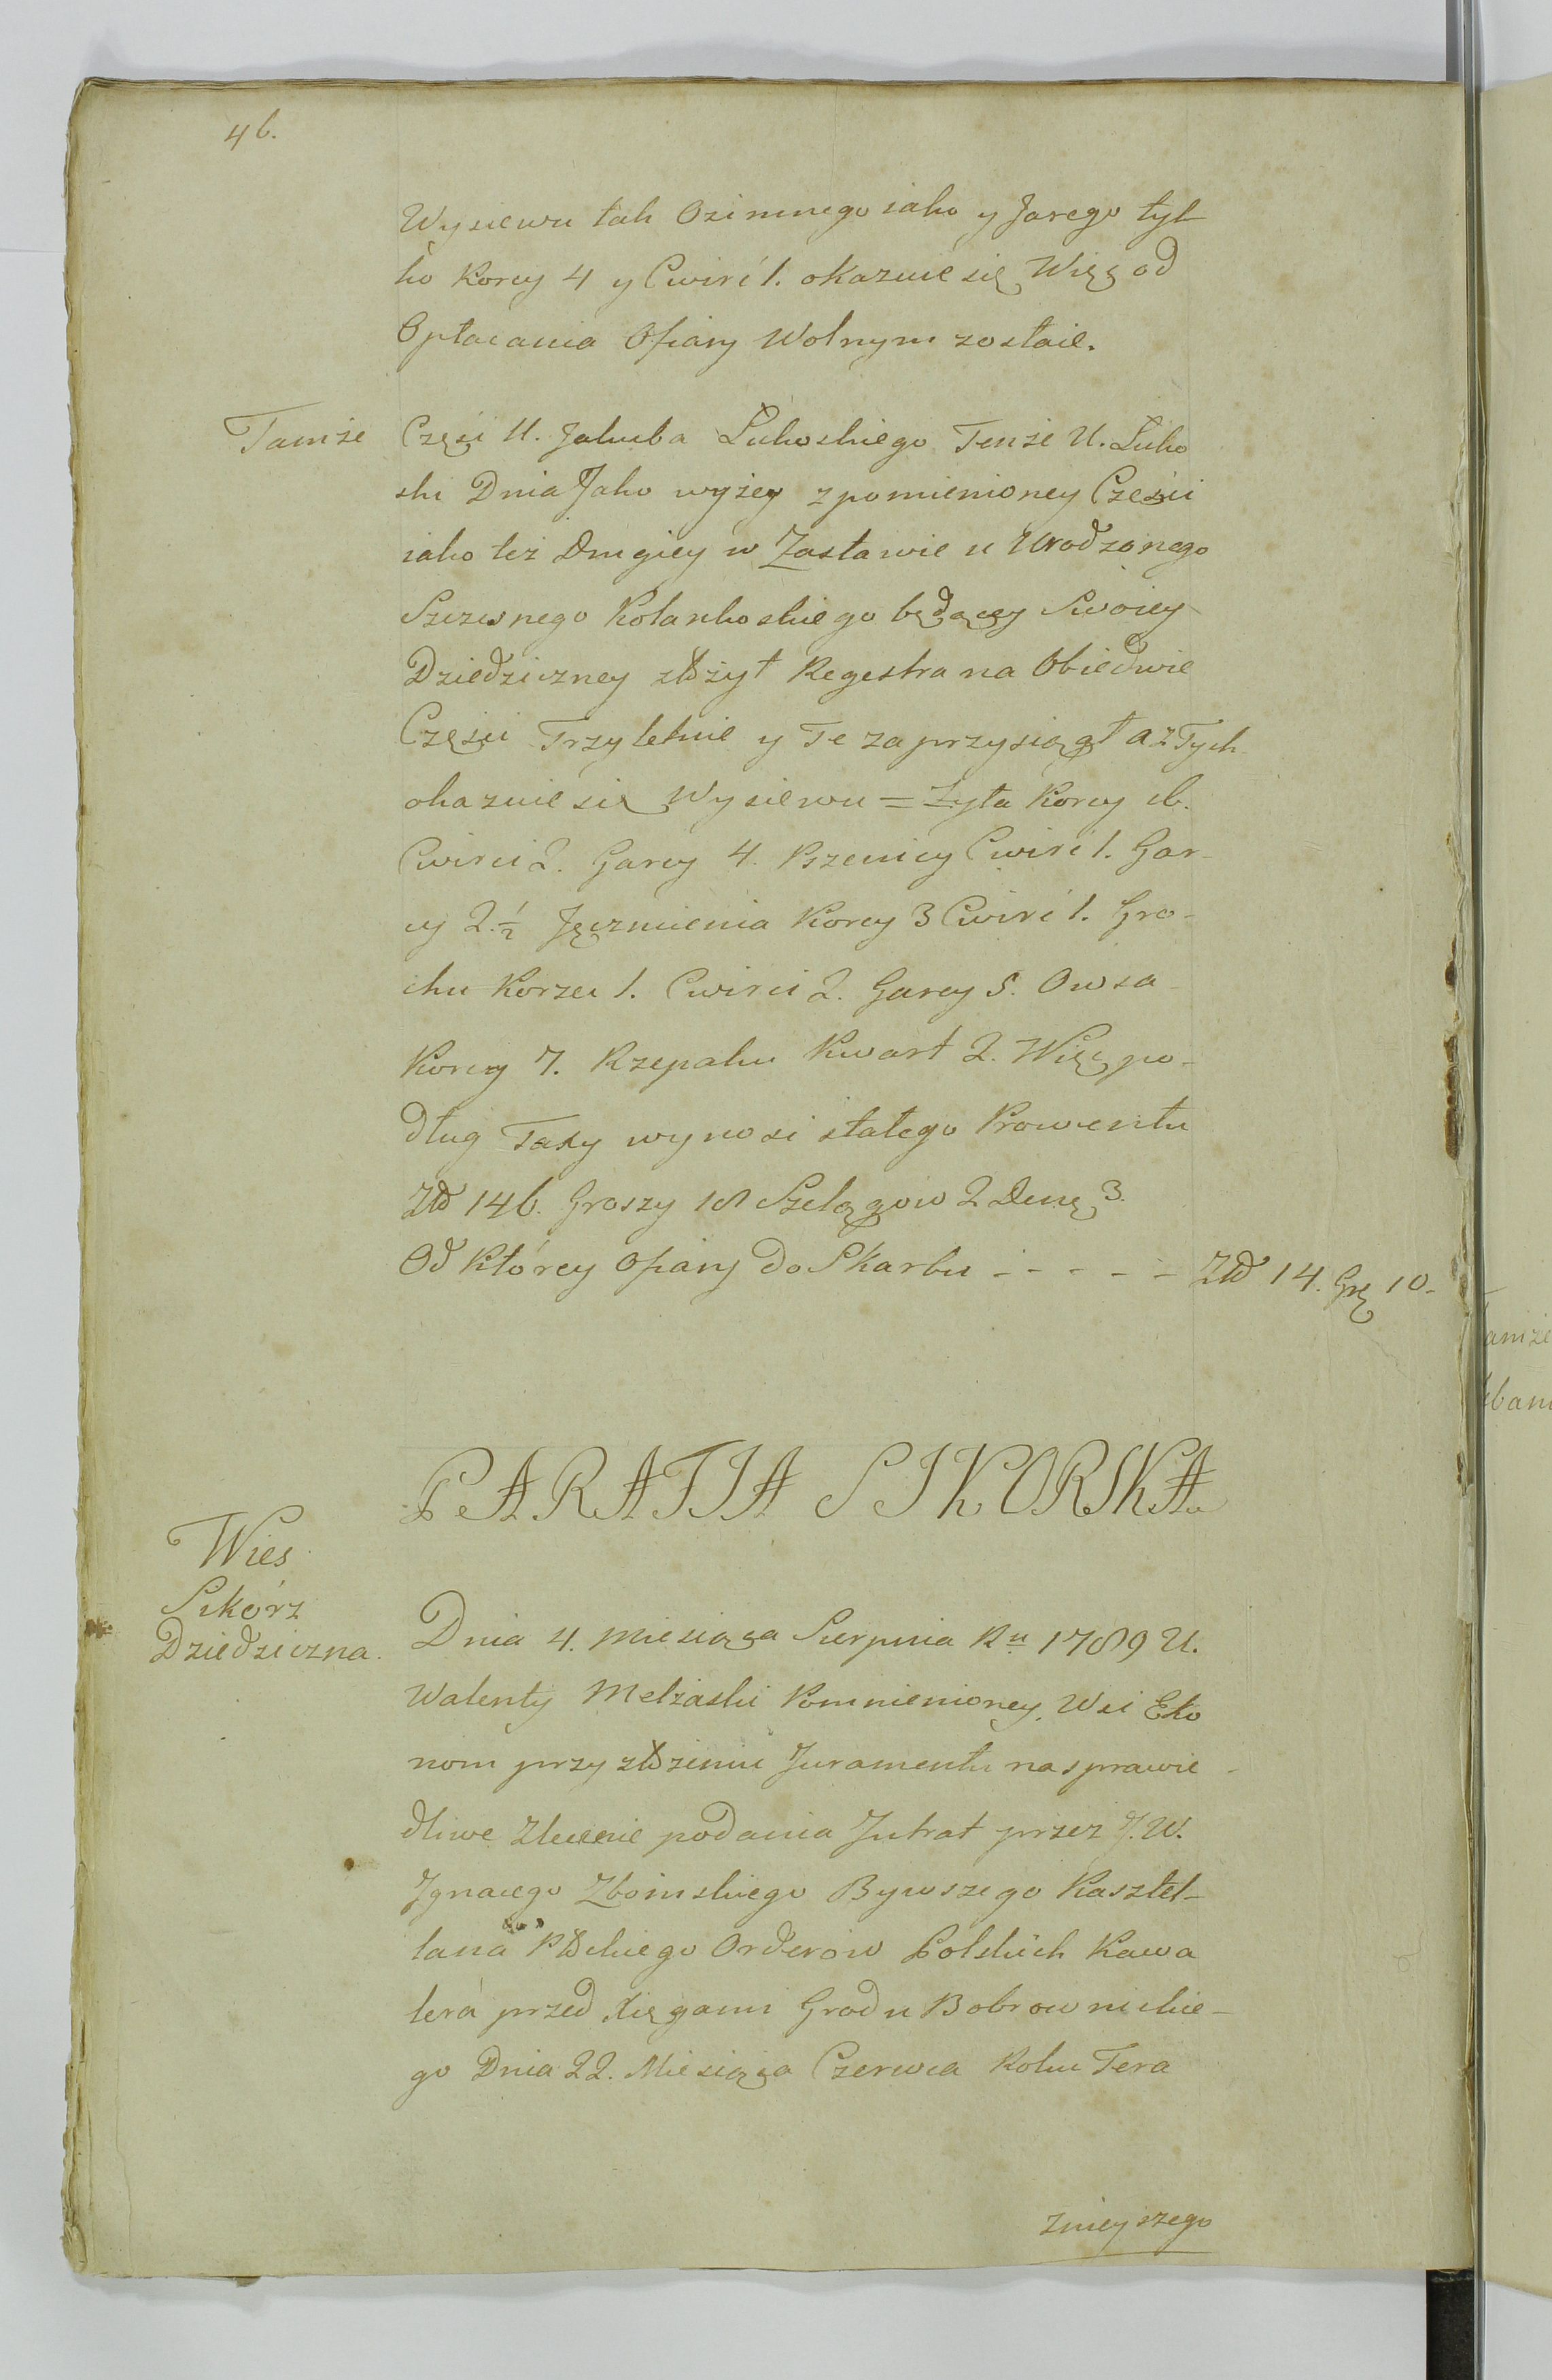 46.
Wysiewu tak Ozimnego iako y Jarego tyl-
ko Korcy 4 y Cwirć 1. okazuie się Więc od
Opłacania Ofiary Wolnym zostaie.
Tamże
Części U. Jakuba Lukoskiego Tenże U. Luko
ski Dnia Jako wyżey z pomienioney Części
iako też Drugiey w Zastawie u Urodzonego
Szczesnego Kolankoskiego będącey Swoiey
Dziedziczney złożył Regestra na Obiedwie
Części Trzyletnie y Te zaprzysiągł a z Tych
okazuie się Wysiewu = Żyta Korcy
Cwirci 2. Garcy 4. Pszenicy Cwirć 1. Gar-
cy 2. ½ Jęczmienia Korcy 3 Cwirć 1. Gro-
chu Korzec 1. Cwirci 2. Garcy 5. Owsa
Korcy 7. Rzepaku Kwart 2. Więc po-
dług Taxy wynosi stałego Prowentu
Zło 146. Groszy 18 Szelągow 2 Dena 3.
Od Którey Ofiary do Skarbu - - - - - Zło 14. Gr 10.
PARAFIA SIKORSKA
Wies
Sikórz
Dziedziczna.
Dnia 4. Miesiąca Sierpnia Ru 1789 U.
Walenty Melzaski Pomnienioney Wsi Eko
nom przy złożeniu Juramentu na sprawie-
dliwe Zlecenie podania Intrat przez J. W.
Ignacego Zboinskiego Bywszego Kasztel-
lana Płockiego Orderow Polskich Kawa
lera przed Xięgami Grodu Bobrownickie-
go Dnia 22. Miesiąca Czerwca Roku Tera
znieyszego
amże